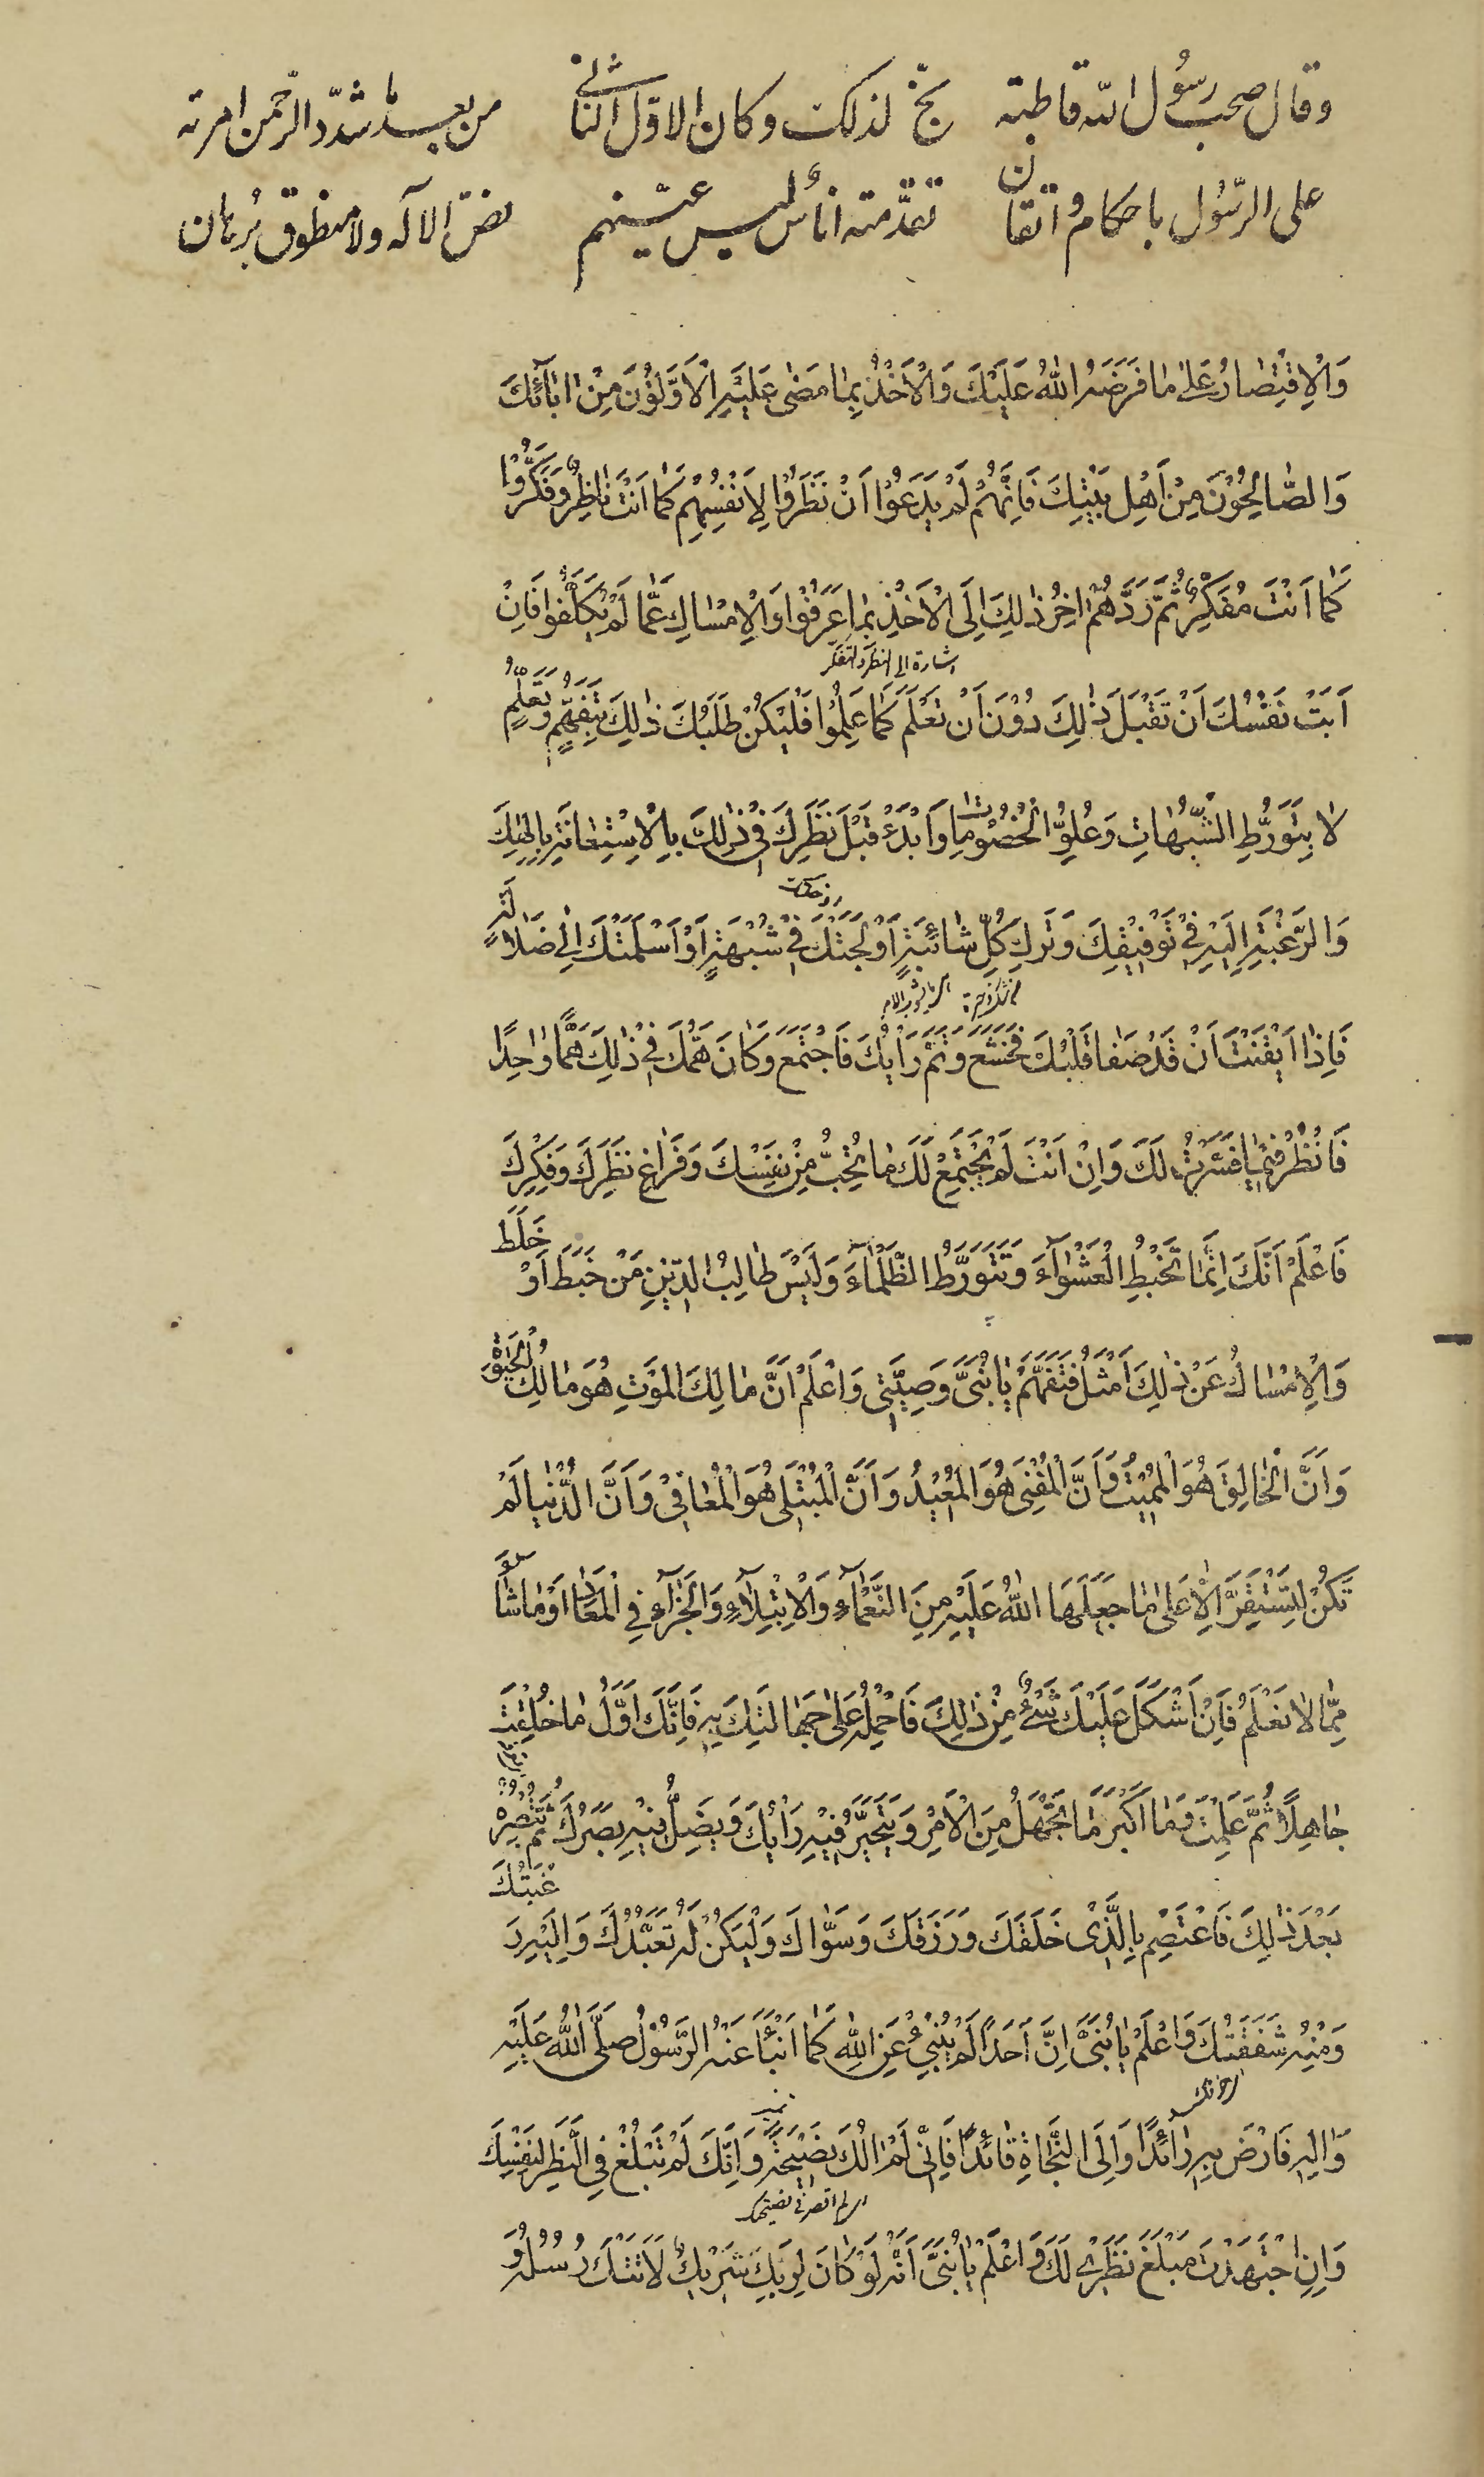 وقال صحب رسول الله قاطبة بخّ لذلك وكان الاوّل الثاني من بعد ما شدّد الرّحمن امرته
على الرّسول باحكام واتقان تقدّمته اناس ليس عيّنهم نصّ الاله ولا منطوق برهان
وَالْاِقْتِصَارُ عَلىٰ مَا فَرَضَهُ اللّٰهُ عَلَيْكَ وَالْاَخْذُ بِمَا مَضىٰ عَلَيْهِ الْاَوَّلُوْنَ مِنْ اٰبَائِكَ
وَالصَّالِحُوْنَ مِنْ اَهْلِ بَيْتِكَ فَاِنَّهُمْ لَمْ يَدَعُوْا اَنْ نَظَرُوْا لِاَنْفُسِهِمْ كَمَا اَنْتَ نَاظِرٌ وَفَكَّرُوْا
كَمَا اَنْتَ مُفَكِّرٌ ثُمَّ رَدَّهُمْ اٰخِرُ ذٰلِكَ اِلَى الْاَخْذِ بِمَا عَرَفُوْا وَالْاِمْسَاكِ عَمَّا لَمْ يُكَلَّفُوا فَاِنْ
اشارة الى النظر والتفكر
اَبَتْ نَفْسُكَ اَنْ تَقْبَلَ ذٰلِكَ دُوْنَ اَنْ تَعْلَمَ كَمَا عَلِمُوْا فَلْيَكُنْ طَلَبُكَ ذٰلِكَ بِتَفَهُّمٍ وَتَعَلُّمٍ
لَا بِتَوَرُّطِ الشُّبُهَاتِ وَعُلُوِّ الْخُصُوْمَاتِ وَابْدَءْ قَبْلَ نَظَرِكَ فِيْ ذٰلِكَ بِالْاِسْتِعَانَةِ بِاِلٰهِكَ
وَالرَّغْبَةِ اِلَيْهِ فِيْ تَوْفِيْقِكَ وَتَرْكِ كُلِّ شَائِبَةٍ اَوْلَجَتْكَ فِيْ شُبْهَةٍ اَوْ اَسْلَمَتْكَ اِلىٰ ضَلَالَةٍ
فَاِذَا اَيْقَنْتَ اَنْ قَدْ صَفَا قَلْبُكَ فَخَشَعَ وَتَمَّ رَاْيُكَ فَاجْتَمَعَ وَكَانَ هَمُّكَ فِيْ ذٰلِكَ هَمًّا وَاحِدًا
فَانْظُرْ فِيْمَا فَسَّرْتُ لَكَ وَاِنْ اَنْتَ لَمْ يَجْتَمِعْ لَكَ مَا تُحِبُّ مِنْ نَفْسِكَ وَفَرَاغِ نَظَرِكَ وَفِكْرِكَ
فَاعْلَمْ اَنَّكَ اِنَّمَا تَخْبِطُ الْعَشْوَاءَ وَتَتَوَرَّطُ الظَّلْمَاءَ وَلَيْسَ طَالِبُ الدِّيْنِ مَنْ خَبَطَ اَوْ خَلَطَ
وَالْاِمْسَاكُ عَنْ ذٰلِكَ اَمْثَلُ فَتَفَهَّمْ يَا بُنَيَّ وَصِيَّتِيْ وَاعْلَمْ اَنَّ مَالِكَ الْمَوْتِ هُوَ مَالِكُ الْحَيٰوةِ
وَاَنَّ الْخَالِقَ هُوَ الْمُمِيْتُ وَاَنَّ الْمُفْنِيَ هُوَ الْمُعِيْدُ وَاَنَّ الْمُبْتَلِيَ هُوَ الْمُعَافِيْ وَاَنَّ الدُّنْيَا لَمْ
تَكُنْ لِتَسْتَقِرَّ اِلَّا عَلىٰ مَا جَعَلَهَا اللّٰهُ عَلَيْهِ مِنَ النَّعْمَاءِ وَالْاِبْتِلَاءِ وَالْجَزَاءِ فِي الْمَعَادِ اَوْ مَا شَاءَ
مِمَّا لَا نَعْلَمُ فَاِنْ اَشْكَلَ عَلَيْكَ شَيْءٌ مِنْ ذٰلِكَ فَاحْمِلْهُ عَلىٰ جَهَالَتِكَ بِهِ فَاِنَّكَ اَوَّلُ مَا خُلِقْتَ
جَاهِلًا ثُمَّ عَلِمْتَ وَمَا اَكْثَرَ مَا تَجْهَلُ مِنَ الْاَمْرِ وَيَتَحَيَّرُ فِيْهِ رَاْيُكَ وَيَضِلُّ فِيْهِ بَصَرُكَ ثُمَّ تُبْصِرُهُ
بَعْدَ ذٰلِكَ فَاعْتَصِمْ بِالَّذِيْ خَلَقَكَ وَرَزَقَكَ وَسَوَّاكَ وَلْيَكُنْ لَهُ تَعَبُّدُكَ وَاِلَيْهِ رَغْبَتُكَ
وَمِنْهُ شَفَقَتُكَ وَاعْلَمْ يَا بُنَيَّ اِنَّ اَحَدًا لَمْ يُنْبِئْ عَنِ اللّٰهِ كَمَا اَنْبَأَ عَنْهُ الرَّسُوْلُ صَلَّى اللّٰهُ عَلَيْهِ
وَاٰلِهِ فَارْضَ بِهِ رَائِدًا وَاِلَى النَّجَاةِ قَائِدًا فَاِنِّيْ لَمْ اٰلُكَ نَصِيْحَةً وَاِنَّكَ لَمْ تَبْلُغْ فِي النَّظَرِ لِنَفْسِكَ
اي لم اقصر في نصيحتك
وَاِنِ اجْتَهَدْتَ مَبْلَغَ نَظَرِيْ لَكَ وَاعْلَمْ يَا بُنَيَّ اَنَّهُ لَوْ كَانَ لِرَبِّكَ شَرِيْكٌ لَاَتَتْكَ رُسُلُهُ وَ